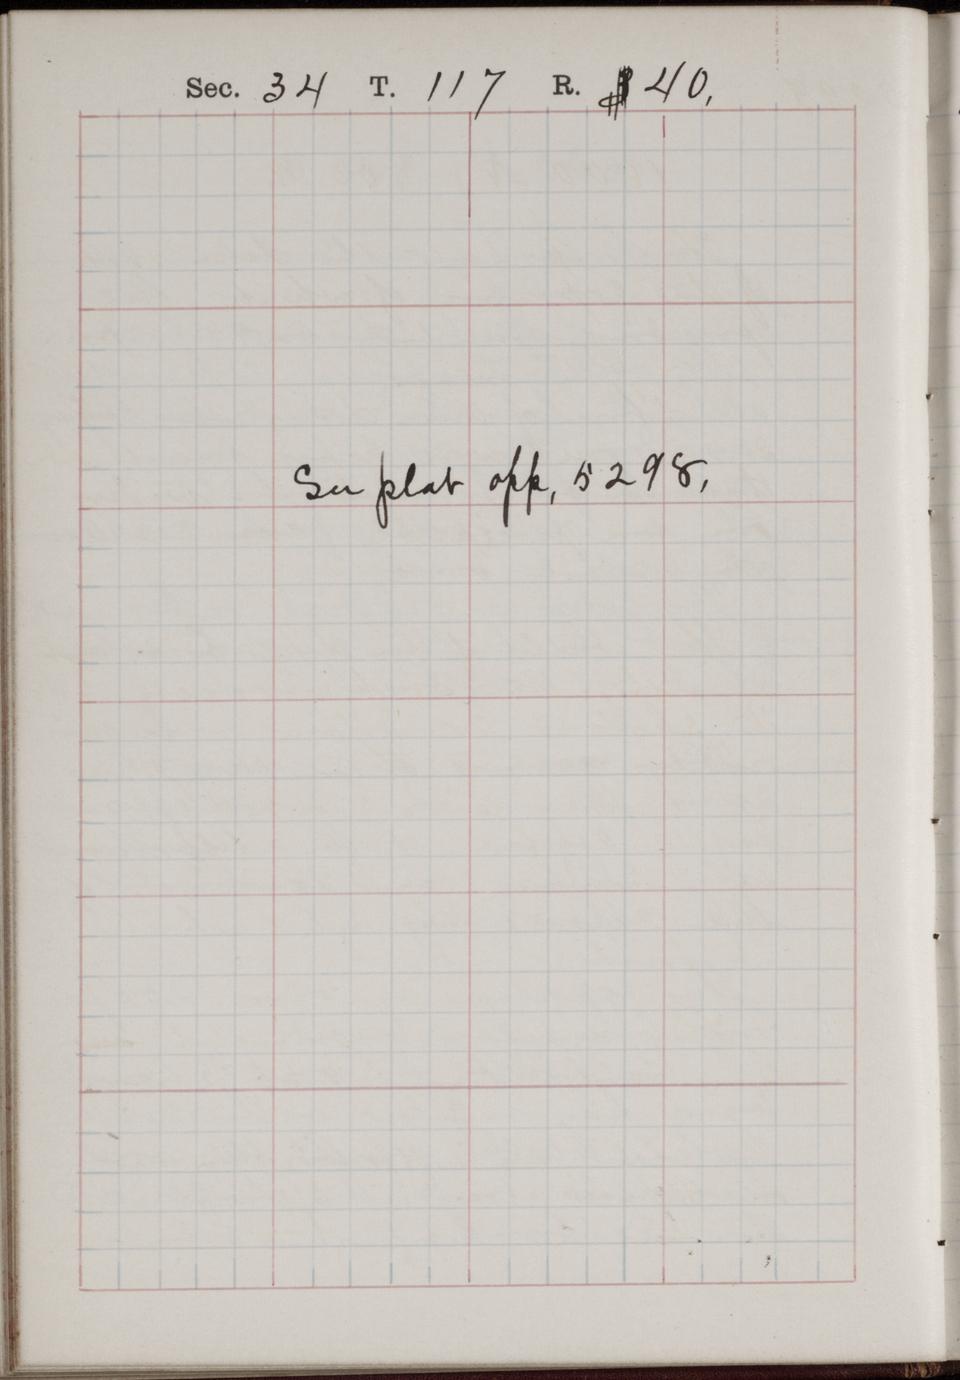 Sec. 34 T. 117 R. 40.
See plat opp, 5298,